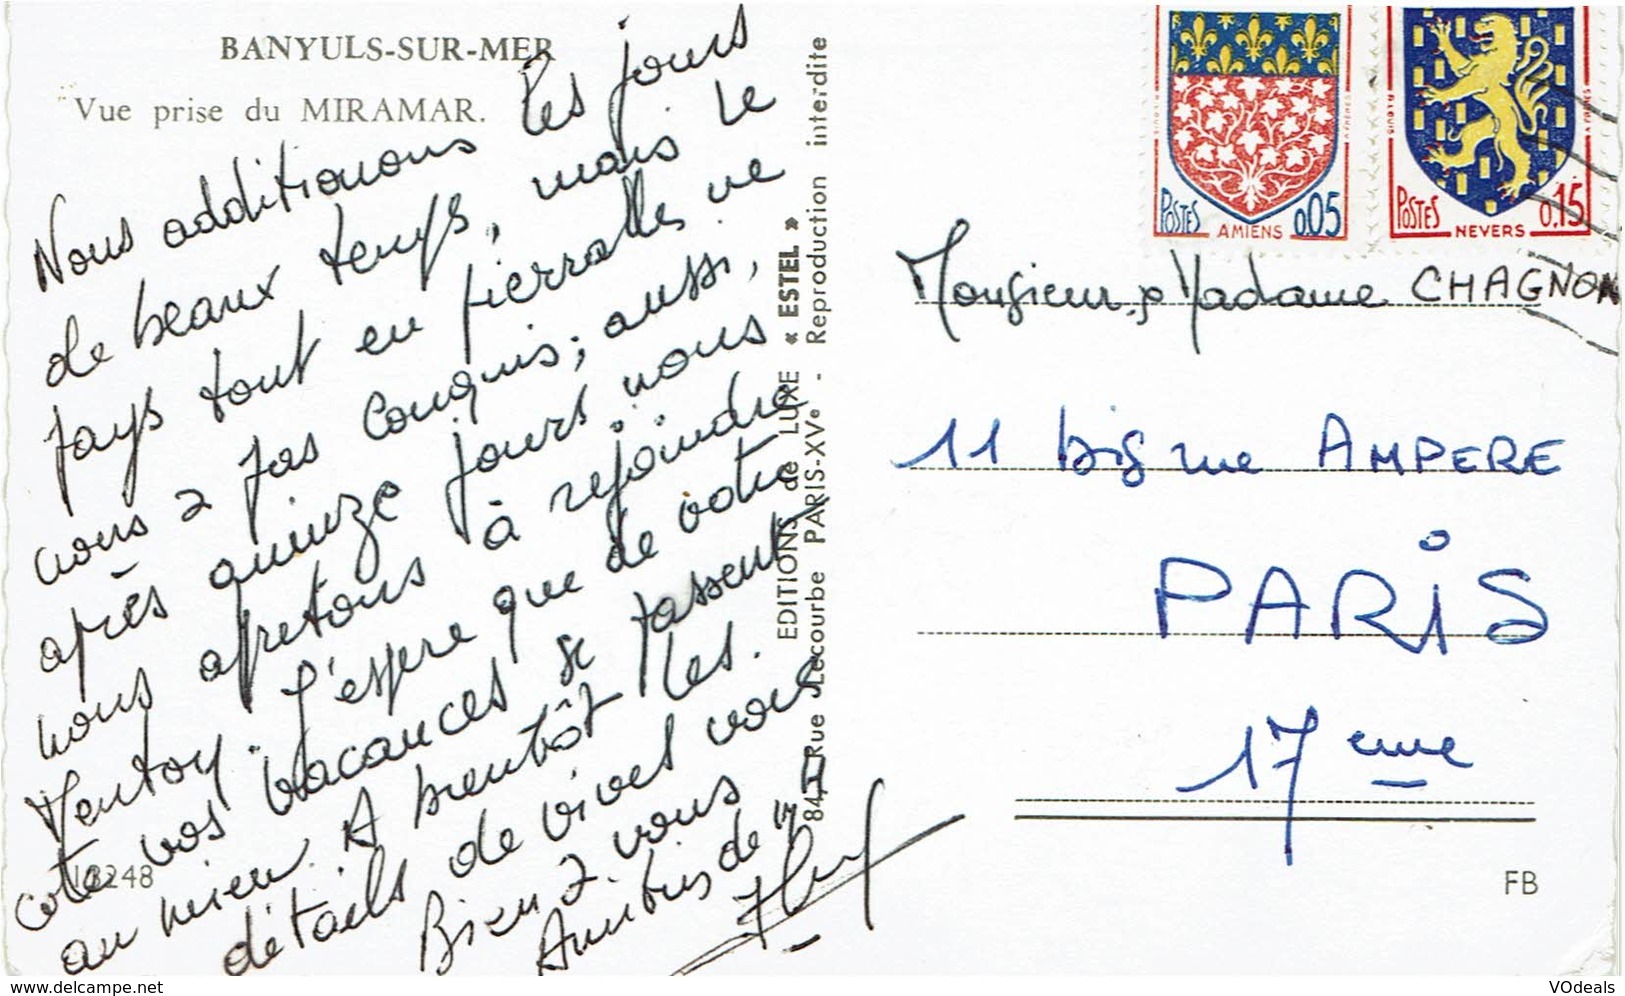 BANYULS-SUR-MER
Vue prise du MIRAMAR.
Nous additionons les jours
de beaux temps, mais le
pays tout en pierrailles ne
nous a pas conquis; aussi,
après quinze jours nous
nous apretons à rejoindre
Menton. J'espère que de votre
coté vos vacances se passent
au mieux. A bientôt les
détails de vives voix.
Bien à vous
Amitiés de
18248
EDITIONS de LUXE « ESTEL »
84, Rue Lecourbe PARIS-XVe - Reproduction interdite
POSTES AMIENS 0,05
POSTES NEVERS 0,15
Monsieur, Madame CHAGNON
11 bis rue AMPERE
PARIS
17 eme
FB
www.delcampe.net
VOdeals